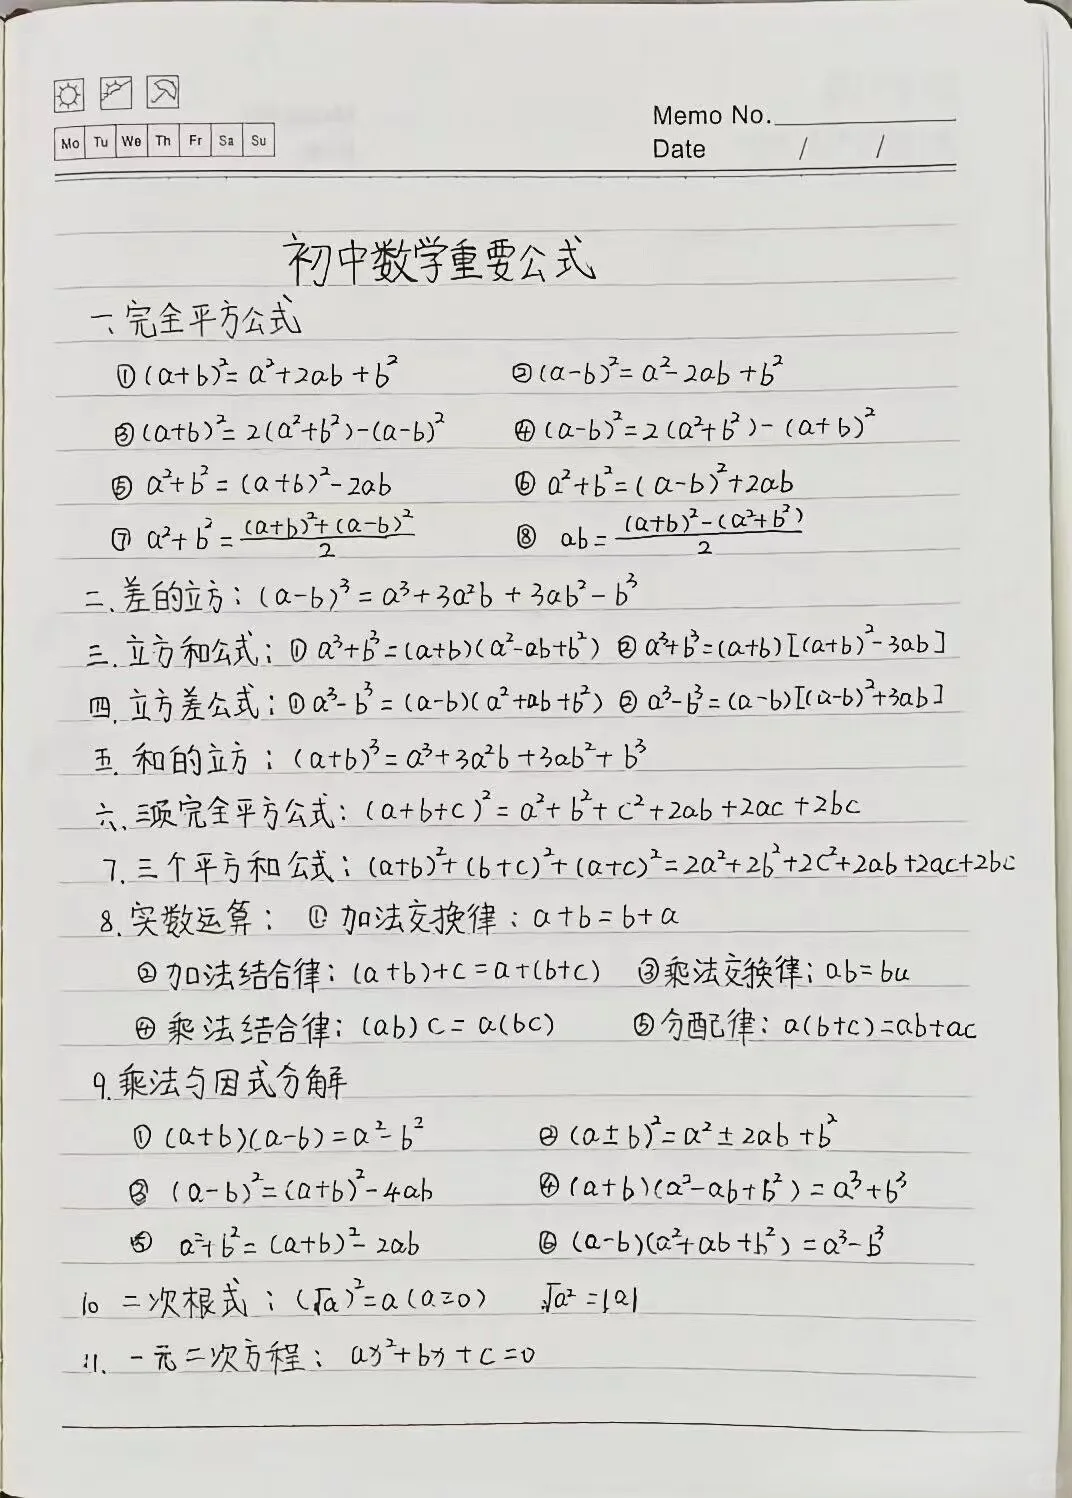 Mo Tu We Th Fr Sa Su
Memo No.
Date / /
初中数学重要公式
一、完全平方公式
①(a+b)²=a²+2ab+b² ②(a-b)²=a²-2ab+b²
③(a+b)²=2(a²+b²)-(a-b)² ④(a-b)²=2(a²+b²)-(a+b)²
⑤ a²+b²=(a+b)²-2ab ⑥ a²+b²=(a-b)²+2ab
⑦ a²+b²=\frac{(a+b)²+(a-b)²}{2} ⑧ ab=\frac{(a+b)²-(a²+b²)}{2}
二、差的立方:(a-b)³=a³+3a²b+3ab²-b³
三.立方和公式:① a³+b³=(a+b)(a²-ab+b²) ② a³+b³=(a+b)[(a+b)²-3ab]
四.立方差公式:① a³-b³=(a-b)(a²+ab+b²) ② a³-b³=(a-b)[(a-b)²+3ab]
五.和的立方:(a+b)³=a³+3a²b+3ab²+b³
六、三项完全平方公式:(a+b+c)²=a²+b²+c²+2ab+2ac+2bc
7.三个平方和公式:(a+b)²+(b+c)²+(a+c)²=2a²+2b²+2c²+2ab+2ac+2bc
8.实数运算: ① 加法交换律:a+b=b+a
②加法结合律:(a+b)+c=a+(b+c) ③乘法交换律:ab=ba
④ 乘法结合律:(ab)c=a(bc) ⑤分配律:a(b+c)=ab+ac
9.乘法与因式分解
① (a+b)(a-b)=a²-b² ② (a±b)²=a²±2ab+b²
③ (a-b)²=(a+b)²-4ab ④ (a+b)(a²-ab+b²)=a³+b³
⑤ a²+b²=(a+b)²-2ab ⑥ (a-b)(a²+ab+b²)=a³-b³
10 二次根式:(√a)²=a(a≥0) √a²=|a|
11.一元二次方程:ax²+bx+c=0